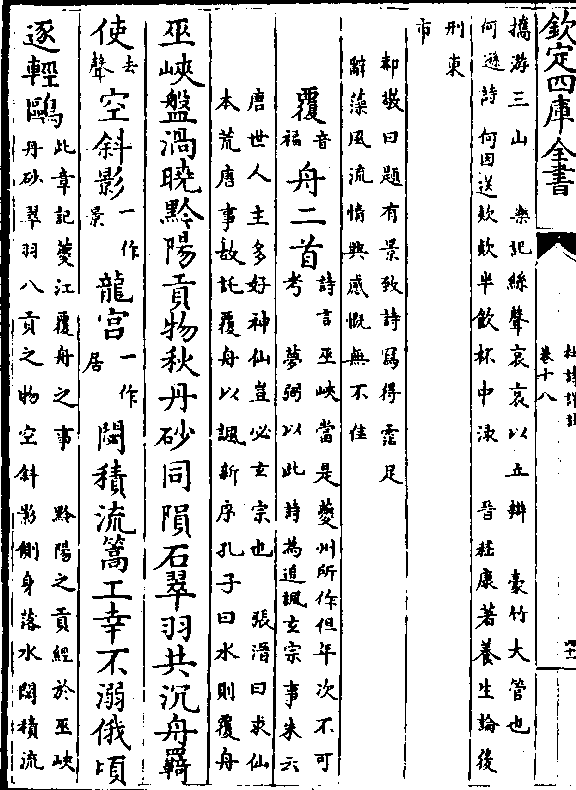 欽定四庫全書
杜詩詳註
卷十八
四十一
擕游三山　樂記絲聲哀哀以立辨　豪竹大管也
何遜詩何因送欵欵半飲杯中渌　晉嵇康著養生論後
刑東
市
郝敬曰題有景致詩寫得霑足
辭藻風流情興感慨無不佳
覆音福舟二首詩言巫峽當是夔州所作但年次不可
考　夢弼以此詩為追諷玄宗事朱云
唐世人主多好神仙豈必玄宗也　張溍曰求仙
本荒唐事故託覆舟以諷新序孔子曰水則覆舟
巫峽盤渦曉黔陽貢物秋丹砂同隕石翠羽共沉舟羇
使去聲空斜影一作景龍宫一作居閟積流篙工幸不溺俄頃
逐輕鷗此章記夔江覆舟之事　黔陽之貢經於巫峽
丹砂翠羽八貢之物空斜影側身落水閟積流